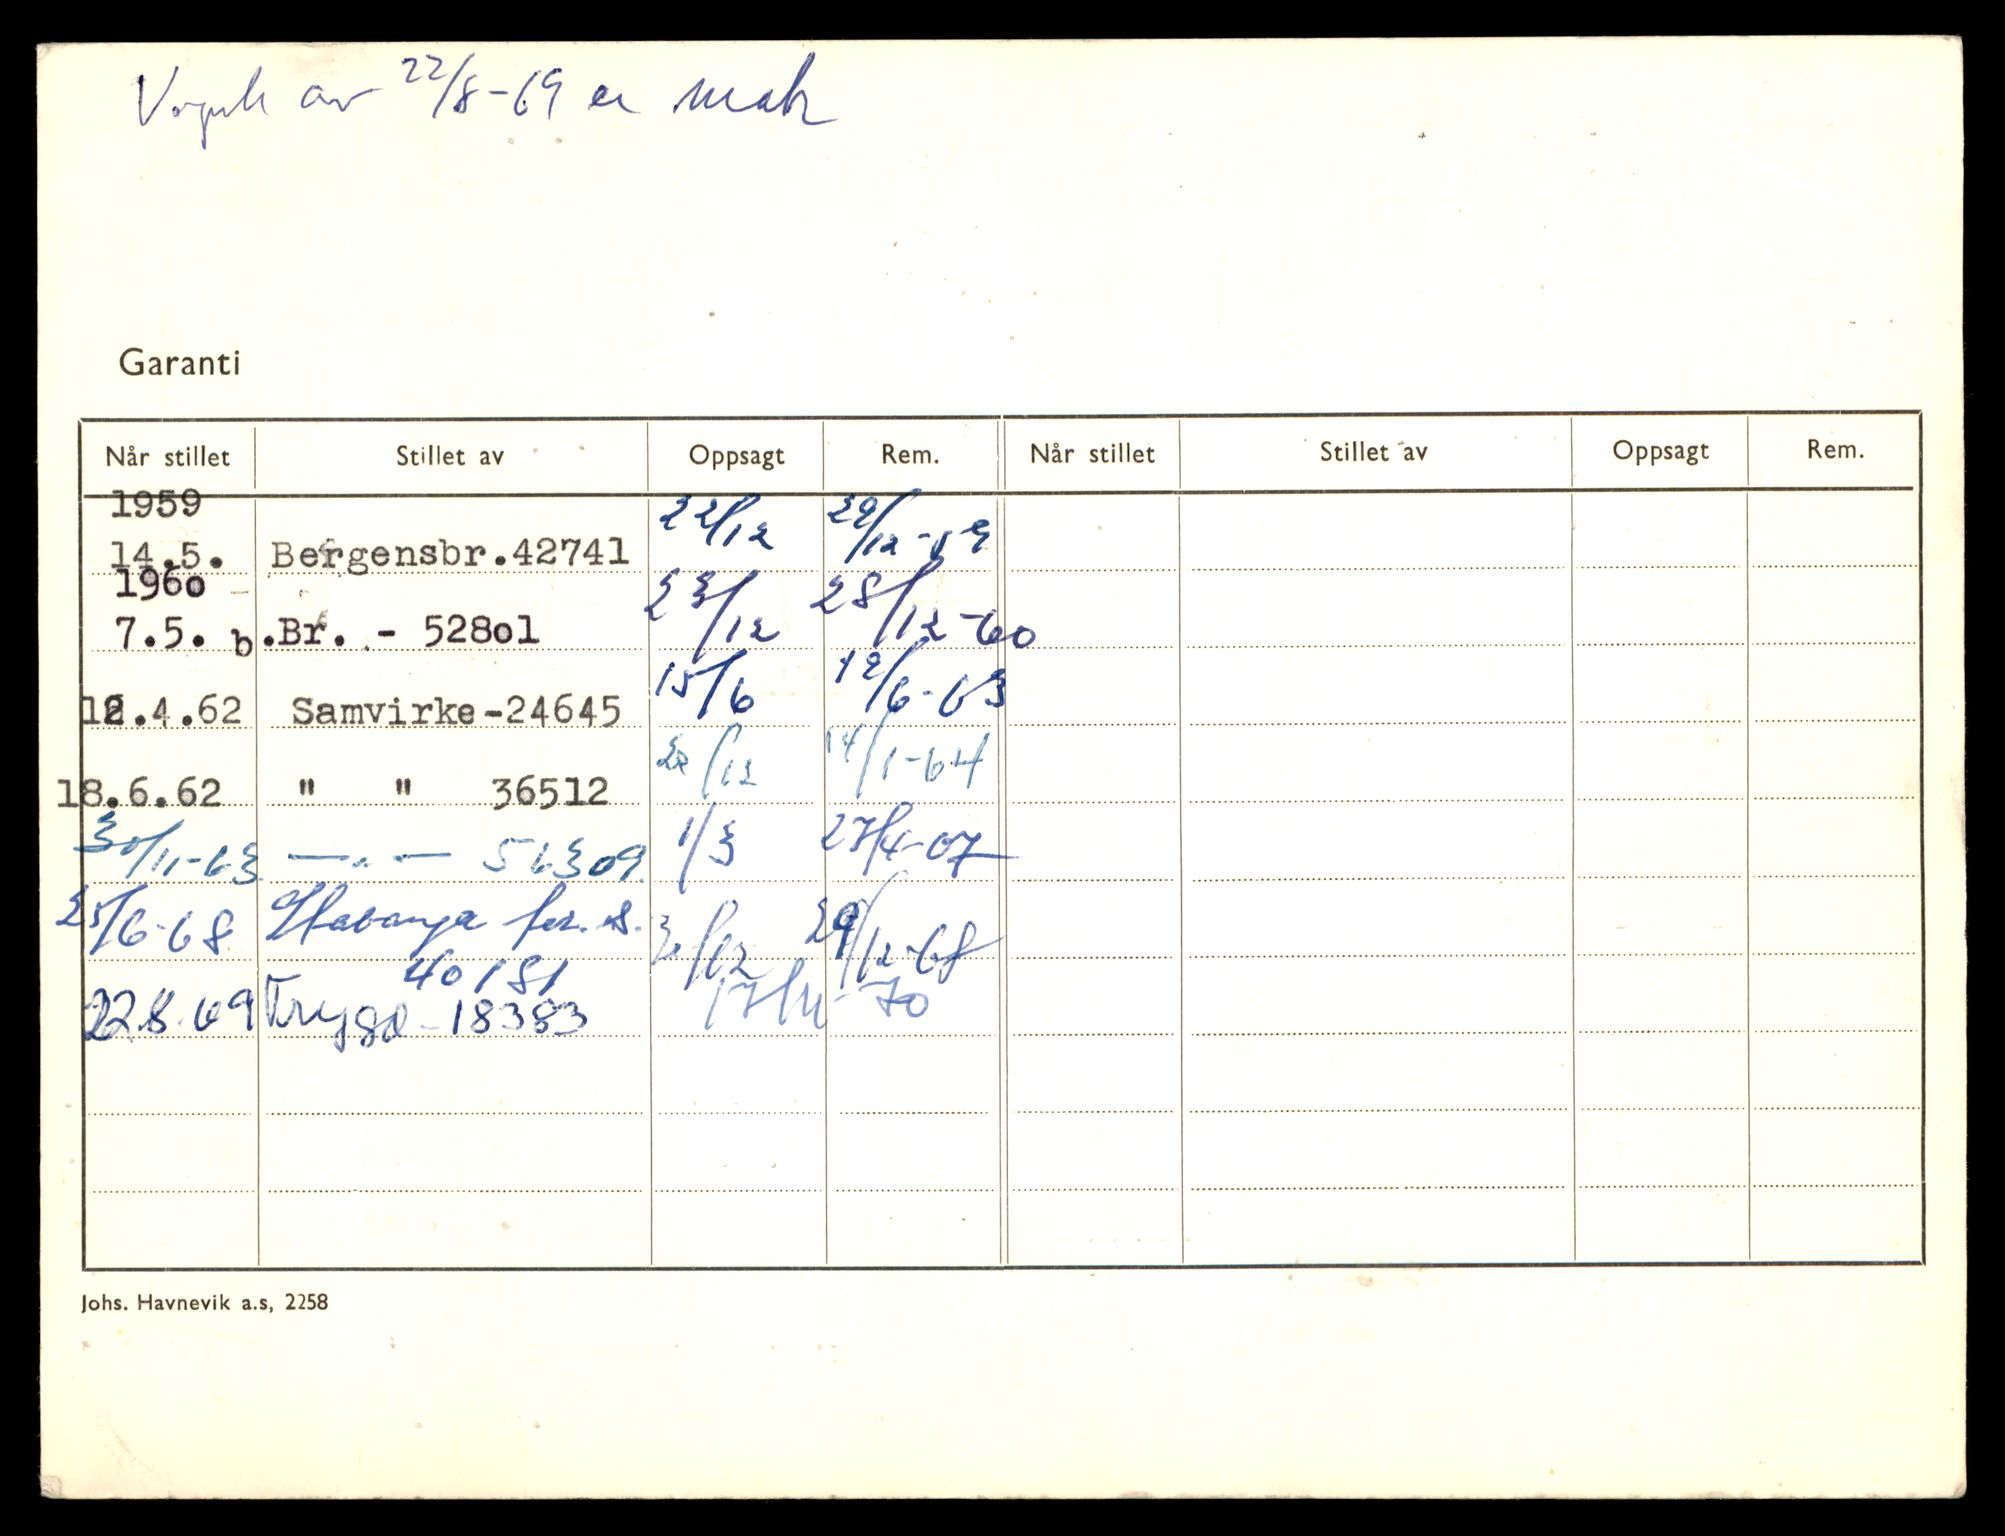 Vognk av 22/8-69 er mak
Garanti
Når stillet Stillet av Oppsagt Rem. Når stillet Stillet av Oppsagt Rem.
1959
14.5. Bergensbr.42741 22/12 29/12-59
1960
7.5. b.Br. - 52801 23/12 28/12-60
12.4.62 Samvirke-24645 15/6 19/6-63
18.6.62 " " 36512 /12 14/1-64
30/11-63 —"— 56309 1/3 27/4-67
25/6-68 40181 /12 29/12-68
22.8.69 Trygd - 18383 -70
Johs. Havnevik a.s, 2258